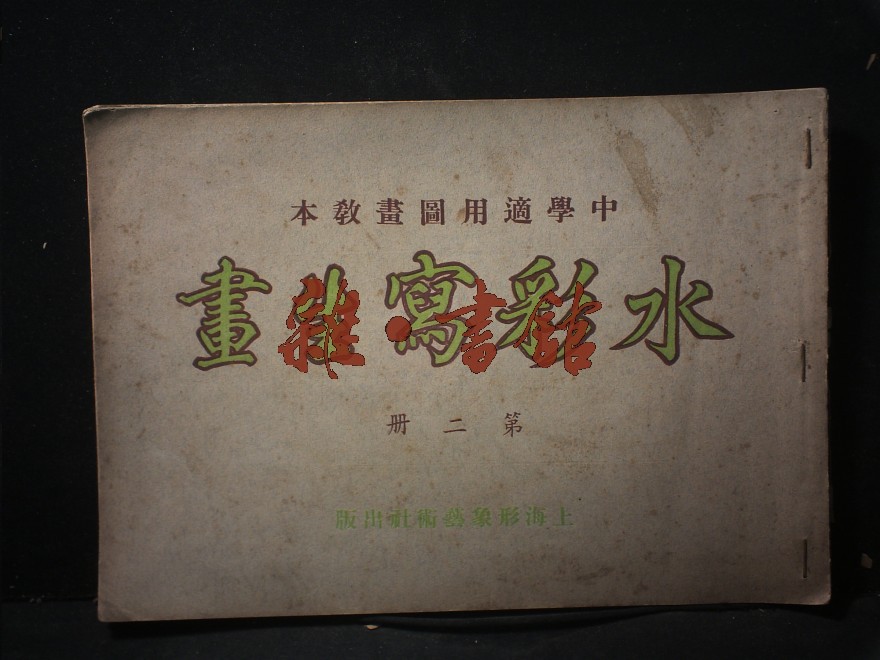 中學適用圖畫敎本
水彩寫生畫
雜·書館
第二册
上海形象藝術社出版